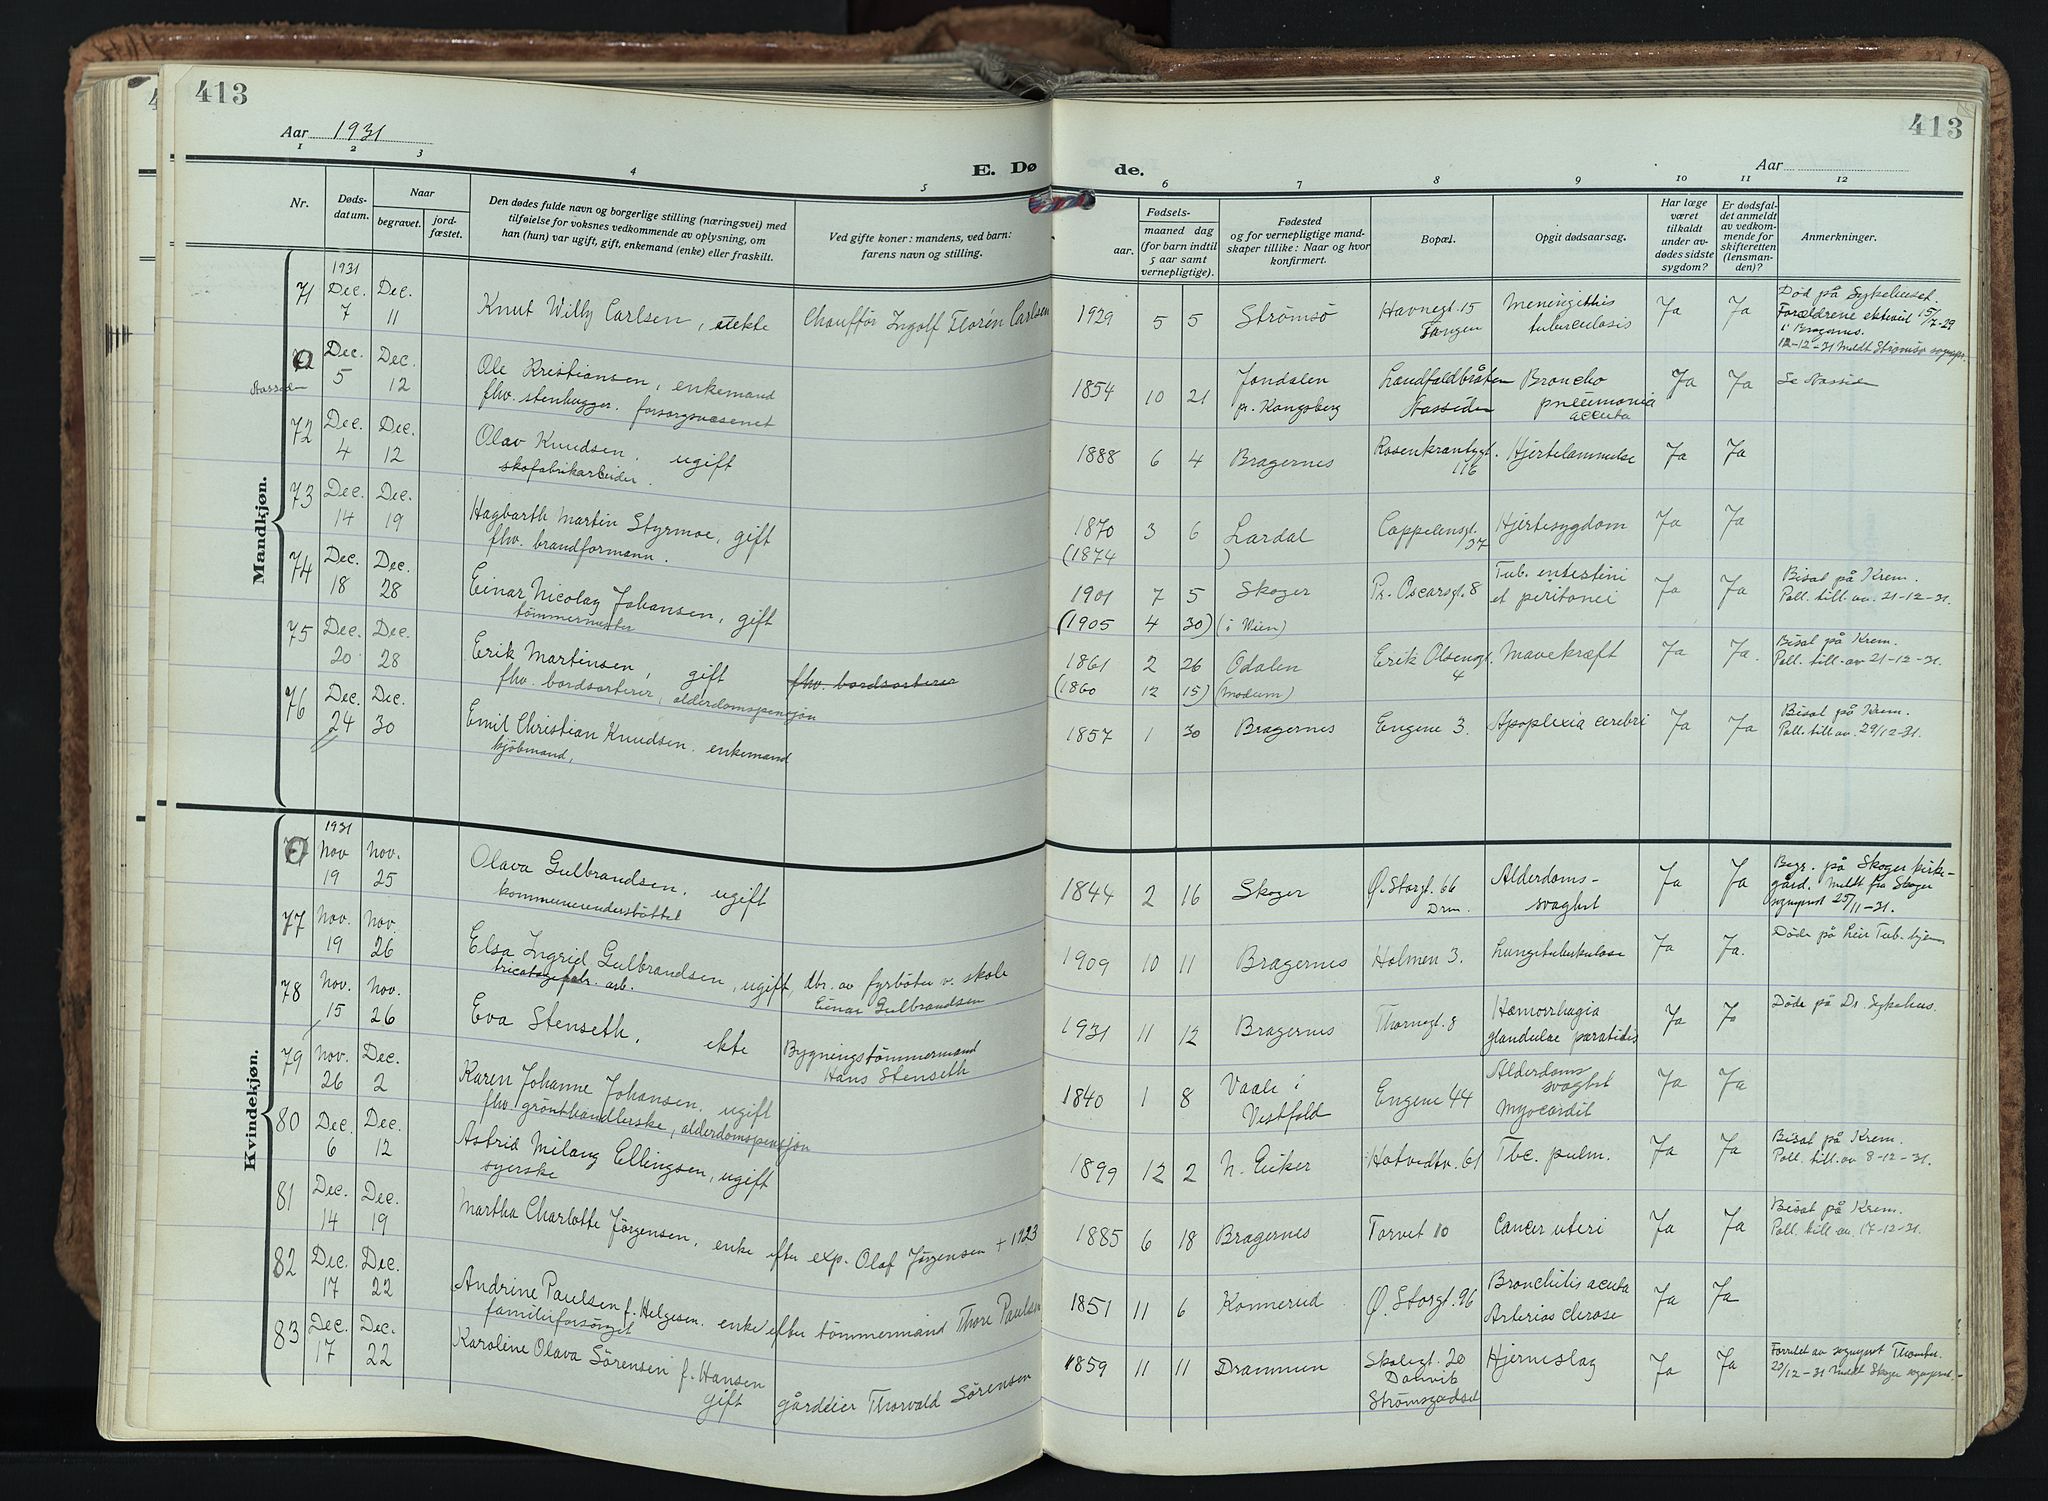 413
413
Aar 1931
Aar
E. Døde.
1 2 3 4 5 6 7 8 9 10 11 12
Nr.
Døds-
datum.
Naar
begravet.
jord-
fæstet.
Den dødes fulde navn og borgerlige stilling (næringsvei) med
tilføielse for voksnes vedkommende av oplysning, om
han (hun) var ugift, gift, enkemand (enke) eller fraskilt.
Ved gifte koner: mandens, ved barn:
farens navn og stilling.
Fødsels-
aar.
maaned dag
(for barn indtil
5 aar samt
vernepligtige).
Fødested
og for vernepligtige mand-
skaper tillike: Naar og hvor
konfirmert.
Bopæl.
Opgit dødsaarsag.
Har læge
været
tilkaldt
under av-
dødes sidste
sygdom?
Er dødsfal-
det anmeldt
av vedkom-
mende for
skifteretten
(lensman-
den)?
Anmerkninger.
Mandkjøn.
1931
71 Dec. 7 Dec. 11 Knut Willy Carlsen, uekte Chauffør Ingolf Florén Carlsen 1929 5 5 Strømsø Havnegt. 15 Meningitis Ja Ja Død på Sykehuset.
Tangen tuberculosis Forældrene ektevid 15/7-29
i Bragernes.
12-12-31 Meldt Strømsø sognepr.
0 Dec. 5 Dec. 12 Ole Kristiansen, enkemand 1854 10 21 Jondalen Landfaldbråten Broncho Ja Ja Se Aassiden
Aassiden fhv. stenhugger. forsorgsvæsenet pr. Kongsberg Aassiden pneumonia
accuta
72 Dec. 4 Dec. 12 Olav Knudsen. ugift 1888 6 4 Bragernes Rosenkrantzgt. Hjertelammelse Ja Ja
skofabrikarbeider. 116
73 Dec. 14 Dec. 19 Hagbarth Martin Styrmoe, gift 1870 3 6 Lardal Cappelensgt. Hjertesygdom Ja Ja
fhv. brandformann. (1874 ) 37
74 Dec. 18 Dec. 28 Einar Nicolay Johansen, gift 1901 7 5 Skoger Pr. Oscarsgt. 8 Tub. entestini Ja Ja Bisat på Krem.
tømmermester (1905 4 30) (i Wien) et peritonei Poll. till. av. 21-12-31.
75 Dec. 20 Dec. 28 Erik Martinsen, gift fhv. bordsorterer 1861 2 26 Odalen Erik Olsensgt. Mavekræft Ja Ja. Bisat på Krem.
fhv. bordsorterer, alderdomspensjon (1860 12 15) (Modum) 4 Poll. till. av 21-12-31.
76 Dec. 24 Dec. 30 Emil Christian Knudsen. enkemand 1857 1 30 Bragernes Engene 3. Apoplexia cerebri Ja Ja Bisat på Krem.
kjøbmand, Poll. till av. 29/12-31.
Kvindekjøn.
1931
0 Nov 19 Nov. 25 Olava Gulbrandsen. ugift 1844 2 16 Skoger Ø. Storgt. 66 Alderdoms- Ja Ja Begr. på Skoger kirke-
kommuneunderstøttet Drm. svaghet gård. Meldt fra Skoger
sogneprest 25/11-31.
77 Nov. 19 Nov. 26 Elsa Ingrid Gulbrandsen, ugift, dtr. av fyrbøter v. skole 1909 10 11 Bragernes Holmen 3. Lungetuberkulose Ja Ja. Døde på Lier Tub. hjem
tricotagefabr. arb. Einar Gulbrandsen
78 Nov. 15 Nov. 26 Eva Stenseth, ekte Bygningstømmermand 1931 11 12 Bragernes Thornegt. 8 Hæmorrhagia Ja Ja Døde på Dr. Sykehus.
Hans Stenseth glandulae paratidis
79 Nov. 26 Dec. 2 Karen Johanne Johansen. ugift 1840 1 8 Vaale i Engene 44 Alderdoms Ja Ja
fhv. grønthandlerske, alderdomspensjon Vestfold svaghet
Myocardit
80 Dec. 6 Dec. 12 Astrid Milany Ellingsen, ugift 1899 12 2 N. Eiker Hotvedtv. 61 Tbc. pulm. Ja Ja Bisat på Krem.
syerske Poll. till. av 8-12-31.
81 Dec. 14 Dec. 19 Martha Charlotte Jørgensen, enke efter exp. Olaf Jørgensen + 1923 1885 6 18 Bragernes Torvet 10 Cancer uteri Ja Ja Bisat på Krem.
Poll till av. 17-12-31.
82 Dec. 17 Dec. 22 Andrine Paulsen f. Helgesen. enke efter tømmermand Thore Paulsen 1851 11 6 Konnerud Ø. Storgt. 96 Bronchitis acuta Ja Ja
familieforsørget Arterios clerose
83 Dec. 17 Dec. 22 Karoline Olava Sørensen f. Hansen 1859 11 11 Drammen Skolegt. 20 Hjerneslag Ja Ja Forrettet av sogneprest
gift gårdeier Thorvald Sørensen Danvik 20/12-31 Meldt Skoger sogneprest.
Strømsgodset